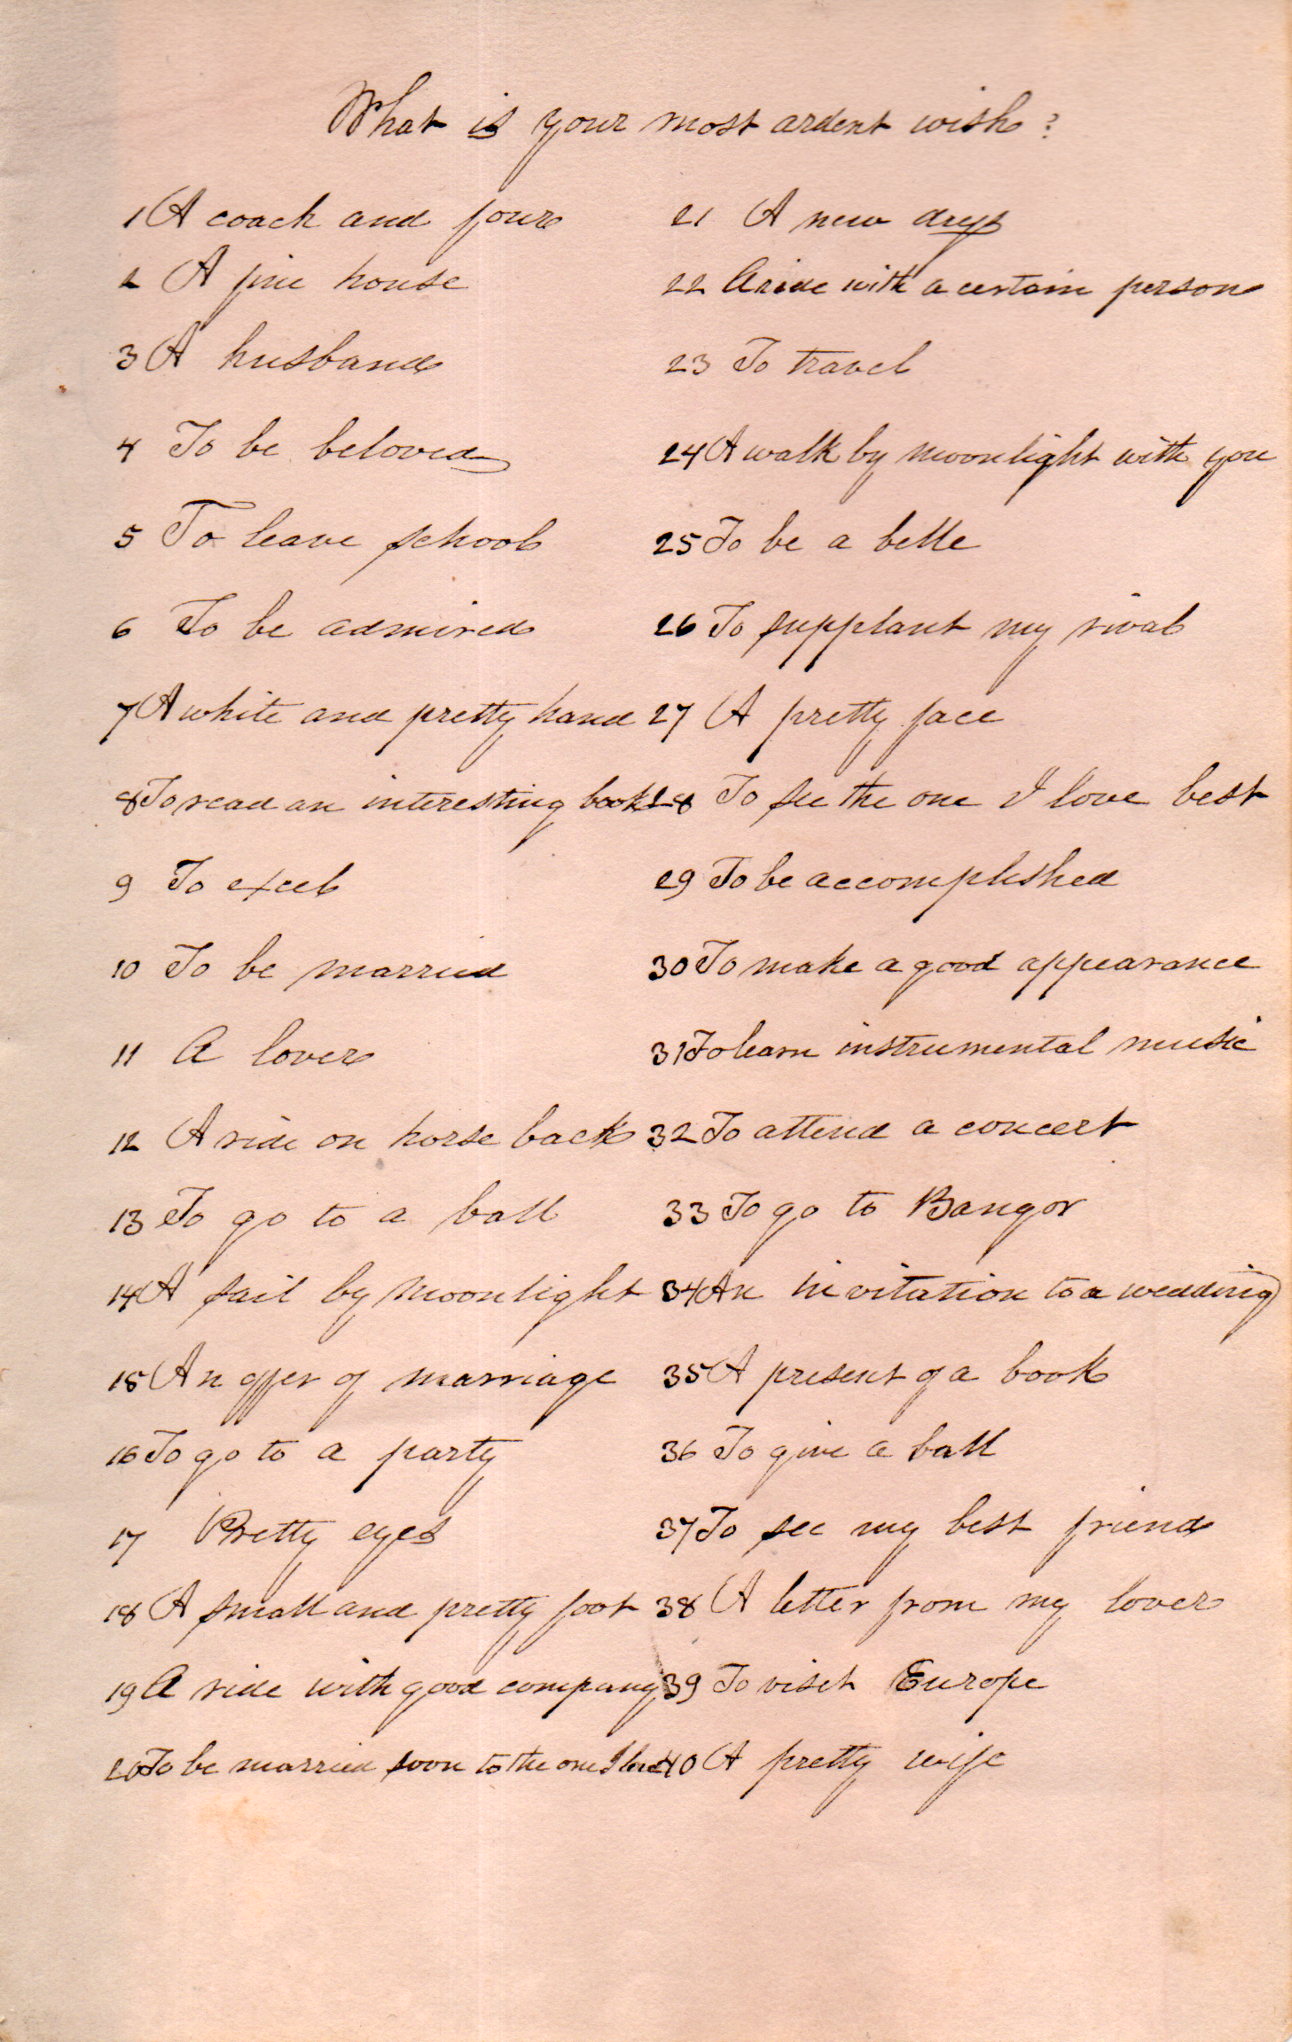 What is your most ardent wish?
1 A coach and four
2 A fine house
3 A husband
4 To be beloved
5 To leave school
6 To be admired
7 A white and pretty hand
8 To read an interesting book
9 To excel
10 To be married
11 A lover
12 A ride on horse back
13 To go to a ball
14 A sail by moonlight
15 An offer of marriage
16 To go to a party
17 Pretty eyes
18 A small and pretty foot
19 A ride with good company
20 To be married soon to the one I love
21 A new
22 A ride with a certain person
23 To travel
24 A walk by moonlight with you
25 To be a belle
26 To supplant my rival
27 A pretty face
28 To see the one I love best
29 To be accomplished
30 To make a good appearance
31 To learn instrumental music
32 To attend a concert
33 To go to Bangor
34 An invitation to a wedding
35 A present of a book
36 To give a ball
37 To see my best friend
38 A letter from my lover
39 To visit Europe
40 A pretty wife